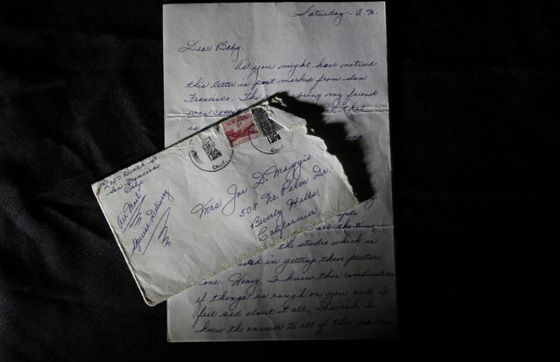 Saturday A.M.
Dear Baby
As you might have noticed
this letter is post marked from San
Francisco. The being my friend
was
that
is
San Francisco
Calif
Air Mail
Special Delivery
CALIF.
Mrs Joe Di Maggio
508 No. Palm Dr.
Beverly Hills,
California
all the time
the studio which is
in getting their picture
done. Honey, I know this combination
of things is rough on you and I
feel sad about it all. I wish I
knew the answer to all of this